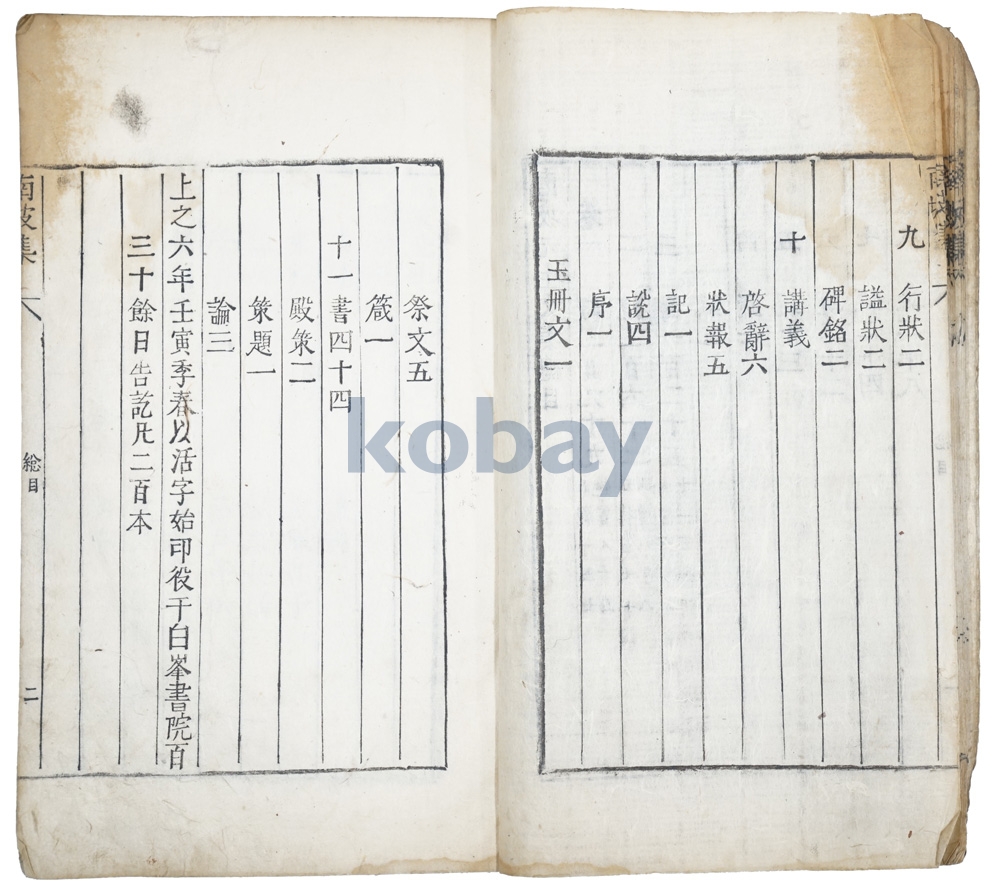 九 行狀二
謚狀二
碑銘三
十 講義
啓辭六
狀報五
記一
說四
序一
玉冊文一
祭文五
箴一
十一 書四十四
殿策二
策題一
論三
上之六年壬寅季春以活字始印役于白峯書院百
三十餘日告訖凡二百本
南坡集
総目
二
kobay